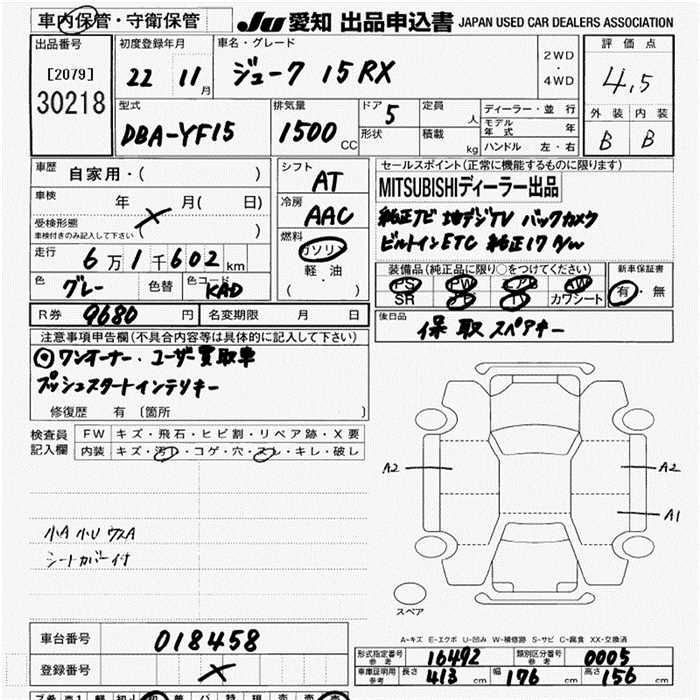 車内保管・守衛保管
JU 愛知 出品申込書 JAPAN USED CAR DEALERS ASSOCIATION
出品番号
[2079]
30218
初度登録年月
22 11月
車名・グレード
ジューク 15RX
2WD
・
4WD
評価点
4,5
型式
DBA-YF15
排気量
1500 CC
ドア
5
形状
定員
人
積載
kg
ディーラー・並行
モデル年式 年
ハンドル 左・右
外装 内装
B B
車歴
自家用・( )
車検
年 月( 日)
受検形態
車検付きのみ記入して下さい ( )
走行
6万1千602 km
色
グレー
色替
色コード
KAD
シフト
AT
冷房
AAC
燃料
ガソリン
軽・油
( ・ )
セールスポイント(正常に機能するものに限ります)
MITSUBISHIディーラー出品
純正ナビ 地デジTV バックカメラ
ビルトインETC 純正17 A/w
装備品(純正品に限り○をつけてください)
PS PW エアB AW
SR ナビ TV カワシート
新車保証書
有・無
R券 9680 円
名変期限 月 日
後日品
保 取 スペアキー
注意事項申告欄(不具合内容等は具体的に記入して下さい)
◎ワンオーナー・ユーザー買取車
プッシュスタートインテリキー
修復歴 有〔箇所 〕
検査員記入欄
FW キズ・飛石・ヒビ割・リペア跡・X要
内装 キズ・汚レ・コゲ・穴・スレ・キレ・破レ
小A 小U ウスA
シートカバー付
A2
A2
A1
スペア
A-キズ E-エクボ U-凹み W-補修跡 S-サビ C-腐食 XX-交換済
車台番号 018458
登録番号
形式指定番号 参考 16492
類別区分番号 参考 0005
車庫証明用 参考 長さ 413 cm 幅 176 cm 高さ 156 cm